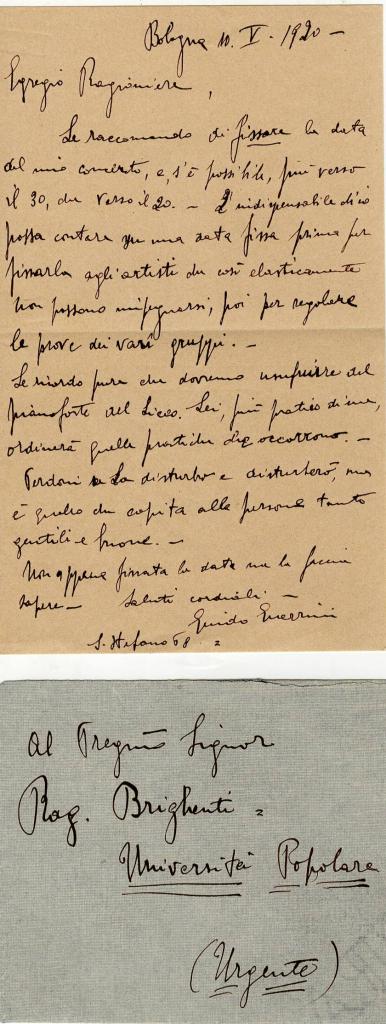 Bologna 10. V. 1920 —
Egregio Ragioniere,
Le raccomando di fissare la data
del mio concerto, e, s'è possibile, più verso
il 30, che verso il 20. — È indispensabile ch'io
possa contare su una data fissa prima per
fissarla agli artisti che così elasticamente
non possono impegnarsi, poi per regolare
le prove dei vari gruppi. —
Le ricordo pure che dovremo usufruire del
pianoforte del Liceo. Lei, più pratico di me,
ordinerà quelle pratiche che occorrono. —
Perdoni se La disturbo e disturberò, ma
è quello che capita alle persone tanto
gentili e buone. —
Non appena fissata la data me la faccia
sapere — Saluti cordiali —
Guido Guerrini
S. Stefano 68 =
Al Pregmo Signor
Rag. Brighenti =
Università Popolare
(Urgente)